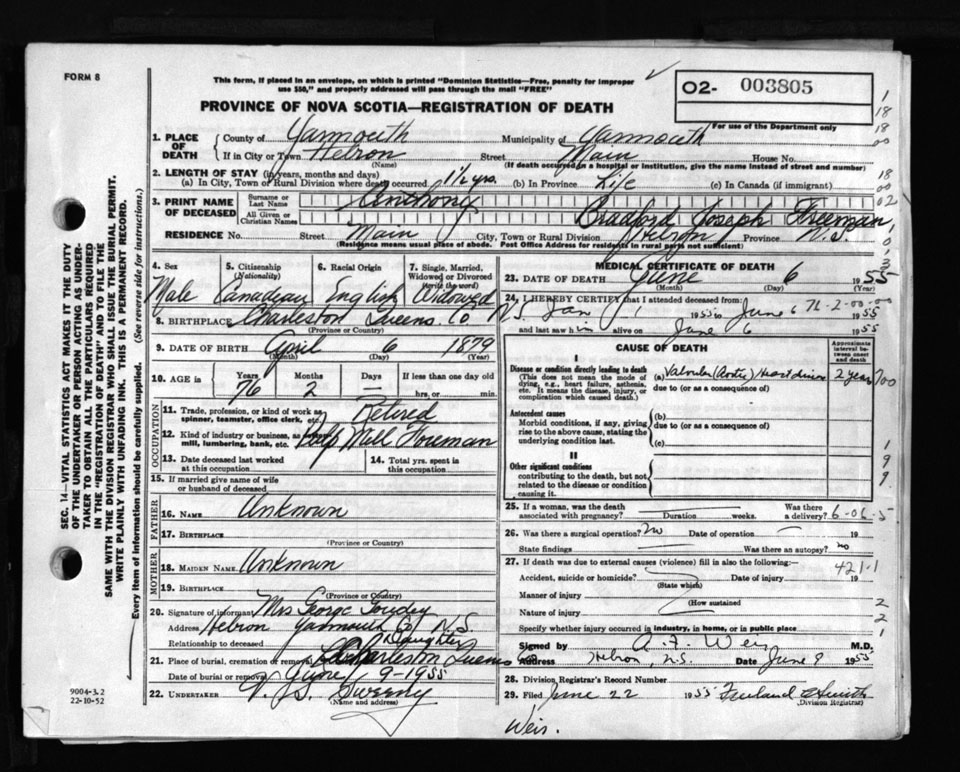 FORM 8
This form, if placed in an envelope, on which is printed "Dominion Statistics—Free, penalty for improper
use $50," and properly addressed will pass through the mail "FREE"
02- 003805
For use of the Department only
PROVINCE OF NOVA SCOTIA—REGISTRATION OF DEATH
1. PLACE OF DEATH
County of Yarmouth Municipality of Yarmouth
If in City or Town Hebron Street Main House No.
(Name) (If death occurred in a hospital or institution, give the name instead of street and number)
2. LENGTH OF STAY (in years, months and days)
(a) In City, Town or Rural Division where death occurred 1½ yrs. (b) In Province Life (c) In Canada (if immigrant)
3. PRINT NAME OF DECEASED
Surname or Last Name Anthony
All Given or Christian Names Bradford Joseph Freeman
RESIDENCE No. Street Main City, Town or Rural Division Hebron Province N.S.
(Residence means usual place of abode. Post Office Address for residents in rural parts not sufficient)
4. Sex Male
5. Citizenship (Nationality) Canadian
6. Racial Origin English
7. Single, Married, Widowed or Divorced (write the word) Widowed
8. BIRTHPLACE Charleston Queens Co. N.S.
(Province or Country)
9. DATE OF BIRTH April 6 1879
(Month) (Day) (Year)
10. AGE in Years 76 Months 2 Days — If less than one day old
hrs. or min.
OCCUPATION
11. Trade, profession, or kind of work as
spinner, teamster, office clerk, etc. Retired
12. Kind of industry or business, as
mill, lumbering, bank, etc. Pulp Mill Foreman
13. Date deceased last worked
at this occupation
14. Total yrs. spent in
this occupation
15. If married give name of wife
or husband of deceased
FATHER
16. NAME Unknown
17. BIRTHPLACE
(Province or Country)
MOTHER
18. MAIDEN NAME Unknown
19. BIRTHPLACE
(Province or Country)
20. Signature of informant Mrs George
Address Hebron Yarmouth Co N.S.
Relationship to deceased Daughter
21. Place of burial, cremation or removal Charleston Queens Co
Date of burial or removal June 9-1955
22. UNDERTAKER V. S. Sweeny
(Name and address)
9004-3.2
22-10-52
MEDICAL CERTIFICATE OF DEATH
23. DATE OF DEATH June 6 1955
(Month) (Day) (Year)
24. I HEREBY CERTIFY that I attended deceased from:
Jan 1 1955 to June 6 1955
71-2-00-00
and last saw him alive on June 6 1955
CAUSE OF DEATH
Approximate interval between onset and death
I
Disease or condition directly leading to death
(This does not mean the mode of
dying, e.g., heart failure, asthenia,
etc. It means the disease, injury, or
complication which caused death.)
(a) Valvular (Aortic) Heart disease 2 years
due to (or as a consequence of)
Antecedent causes
Morbid conditions, if any, giving
rise to the above cause, stating the
underlying condition last.
(b)
due to (or as a consequence of)
(c)
II
Other significant conditions
contributing to the death, but not
related to the disease or condition
causing it.
25. If a woman, was the death
associated with pregnancy? Duration weeks. Was there a delivery?
6-06-5
26. Was there a surgical operation? no Date of operation
State findings Was there an autopsy? no
27. If death was due to external causes (violence) fill in also the following:
421-1
Accident, suicide or homicide? Date of injury 19
(State which)
Manner of injury
(How sustained
Nature of injury
Specify whether injury occurred in industry, in home, or in public place
Signed by A. F. Weir M.D.
Address Hebron, N.S. Date June 9 1955
28. Division Registrar's Record Number
29. Filed June 22 1955 Smith
(Division Registrar)
Weir.
SEC. 14—VITAL STATISTICS ACT MAKES IT THE DUTY
OF THE UNDERTAKER OR PERSON ACTING AS UNDER-
TAKER TO OBTAIN ALL THE PARTICULARS REQUIRED
IN THE "REGISTRATION OF DEATH" AND TO FILE THE
SAME WITH THE DIVISION REGISTRAR WHO SHALL ISSUE THE BURIAL PERMIT.
WRITE PLAINLY WITH UNFADING INK. THIS IS A PERMANENT RECORD.
Every item of information should be carefully supplied. (See reverse side for instructions.)